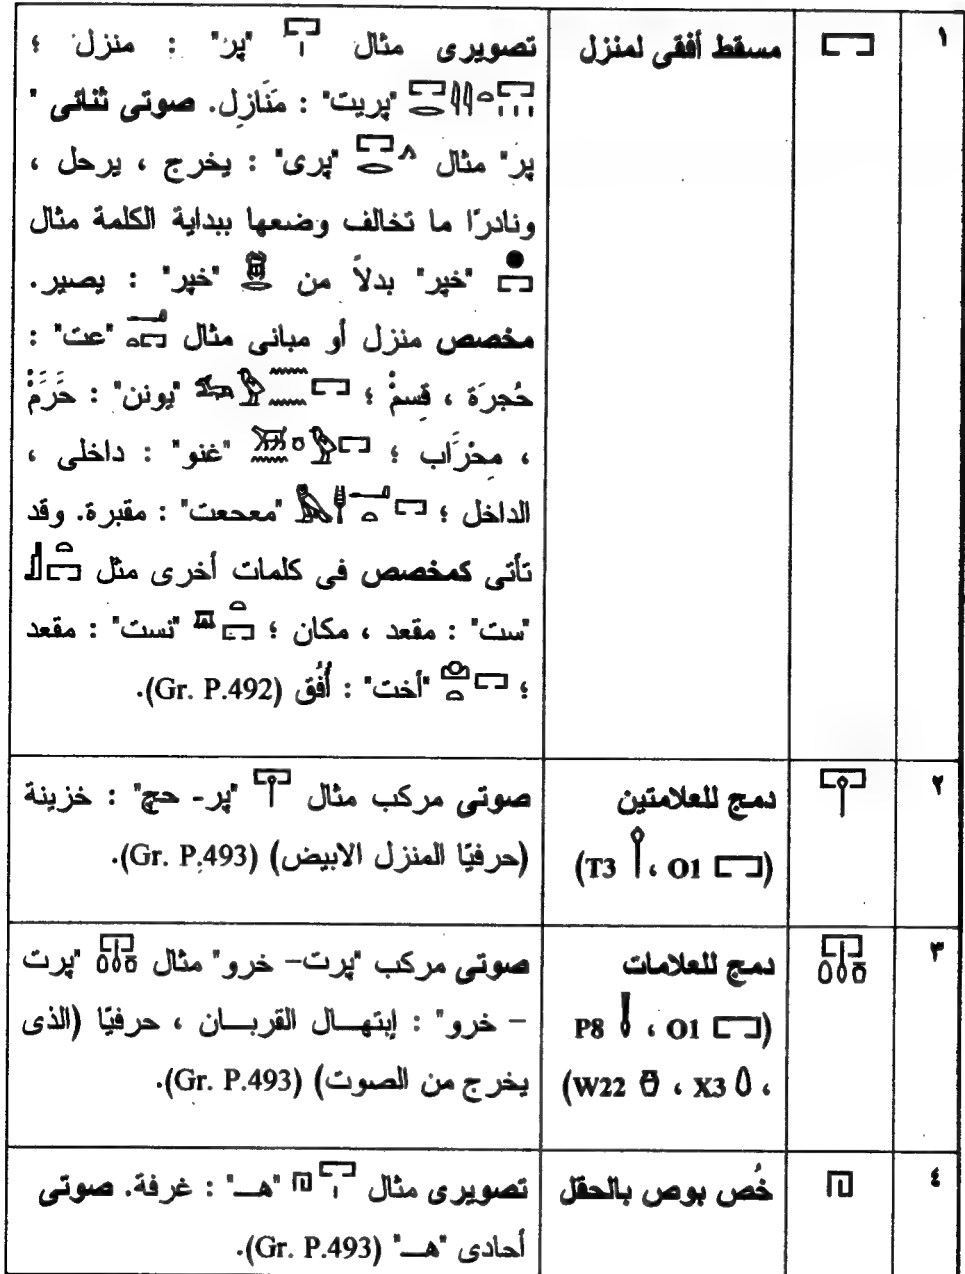 ١
𓉐
مسقط أفقى لمنزل
تصويرى مثال 𓉐𓏤 "پر" : منزل ؛
𓉐𓂋𓇌𓏏𓉐𓏥 "پريت" : مَنَازِل. صوتى ثنائى "
پر" مثال 𓉐𓂋𓂻 "پرى" : يخرج ، يرحل ،
ونادرًا ما تخالف وضعها ببداية الكلمة مثال
𓐍𓉐 "خپر" بدلاً من 𓆣 "خپر" : يصير.
مخصص منزل أو مبانى مثال 𓂝𓏏𓉐 "عت" :
حُجرَة ، قِسمْ ؛ "يونن" : حَرَمْ
، مِحْرَاب ؛ "غنو" : داخلى ،
الداخل ؛ "معحعت" : مقبرة. وقد
تأتى كمخصص فى كلمات أخرى مثل 𓊨𓏏𓉐
"ست" : مقعد ، مكان ؛ 𓎼𓏏𓉐 "نست" : مقعد
؛ 𓈌𓏏𓉐 "أخت" : أُفُق (Gr. P.492).
٢
𓉑
دمج للعلامتين
(O1 𓉐 ، T3 𓌉)
صوتى مركب مثال 𓉑 "پر- حچ" : خزينة
(حرفيًا المنزل الابيض) (Gr. P.493).
٣
𓉓
دمج للعلامات
(O1 𓉐 ، P8 𓊤
، X3 𓏐 ، W22 𓏊)
صوتى مركب "پرت– خرو" مثال 𓉓 "پرت
– خرو" : إبتهال القربان ، حرفيًا (الذى
يخرج من الصوت) (Gr. P.493).
٤
𓉔
خُص بوص بالحقل
تصويرى مثال 𓉔𓉐𓏤 "هـ" : غرفة. صوتى
أحادى "هـ" (Gr. P.493).